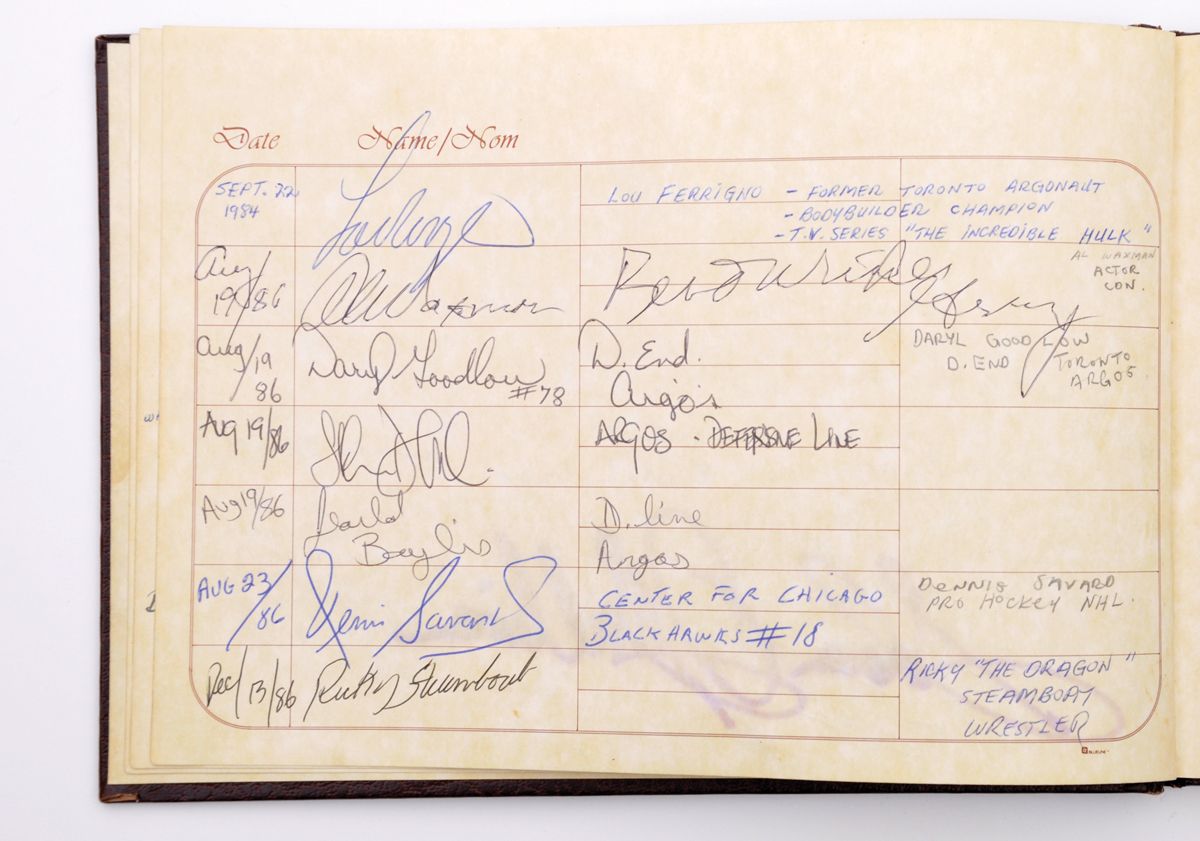 Date Name/Nom
SEPT. 22
1984
LOU FERRIGNO - FORMER TORONTO ARGONAUT
- BODYBUILDER CHAMPION
- T.V. SERIES "THE INCREDIBLE HULK"
Aug/
19/86
Al Waxman
Best Wishes
AL WAXMAN
ACTOR
CON.
Aug/19
86
Daryl Goodlow
#78
D. End.
Argo's
DARYL GOODLOW
D. END TORONTO
ARGOS.
Aug 19/86
ARGOS - DEFENSIVE LINE
Aug 19/86
Jearld
Baylis
D. line
Argos
AUG 23
/86
Denis Savard
CENTER FOR CHICAGO
BLACKHAWKS #18
DENNIS SAVARD
PRO HOCKEY NHL.
Dec/13/86
Ricky Steamboat
RICKY "THE DRAGON"
STEAMBOAT
WRESTLER